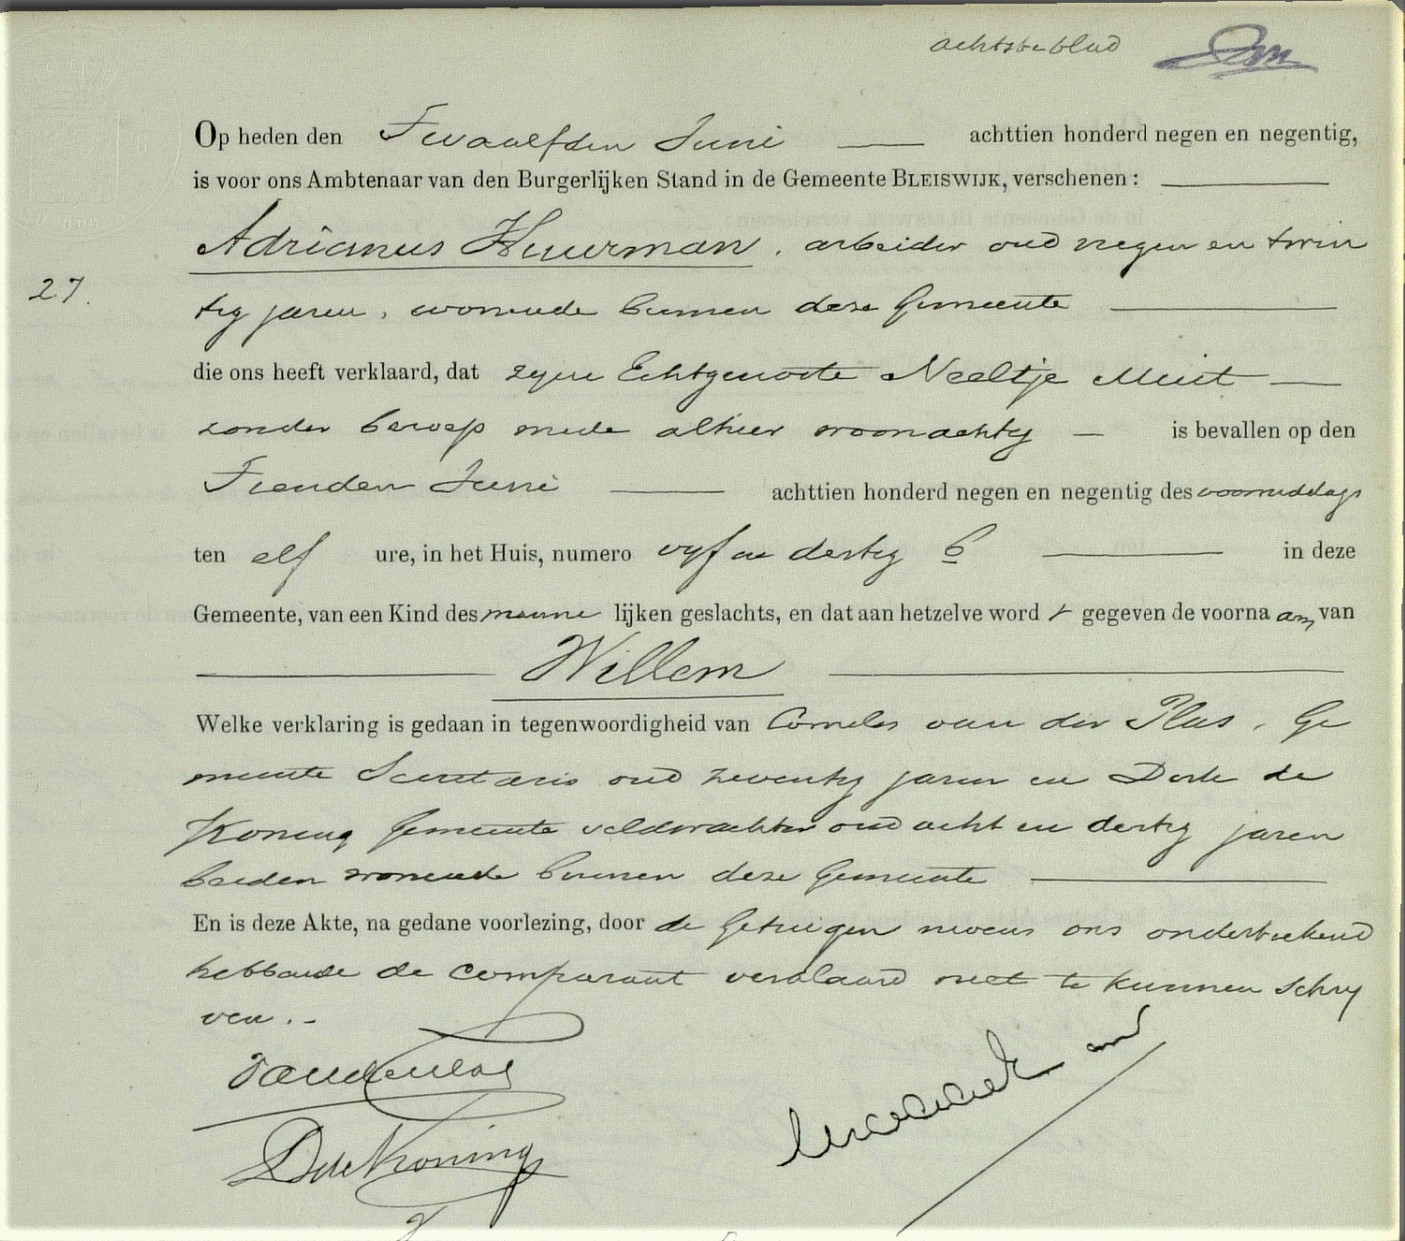 achtste blad
Op heden den Twaalfden Juni achttien honderd negen en negentig,
is voor ons Ambtenaar van den Burgerlijken Stand in de Gemeente BLEISWIJK, verschenen:
Adrianus Huurman, arbeider oud negen en twin
27.
tig jaren, wonende binnen deze Gemeente
die ons heeft verklaard, dat zijne Echtgenoote Neeltje Muit
zonder beroep mede alhier woonachtig is bevallen op den
Tienden Juni achttien honderd negen en negentig des voormiddags
ten elf ure, in het Huis, numero vijf en dertig b in deze
Gemeente, van een Kind des manne lijken geslachts, en dat aan hetzelve word t gegeven de voorna am, van
Willem
Welke verklaring is gedaan in tegenwoordigheid van Cornelis van der Plas, Ge
meente Secretaris oud zeventig jaren en Dirk de
Koning Gemeente veldwachter oud acht en dertig jaren
beiden wonende binnen deze Gemeente
En is deze Akte, na gedane voorlezing, door de Getuigen nevens ons onderteekend
hebbende de comparant verklaard niet te kunnen schrij
ven.
van der Plas
D de Koning